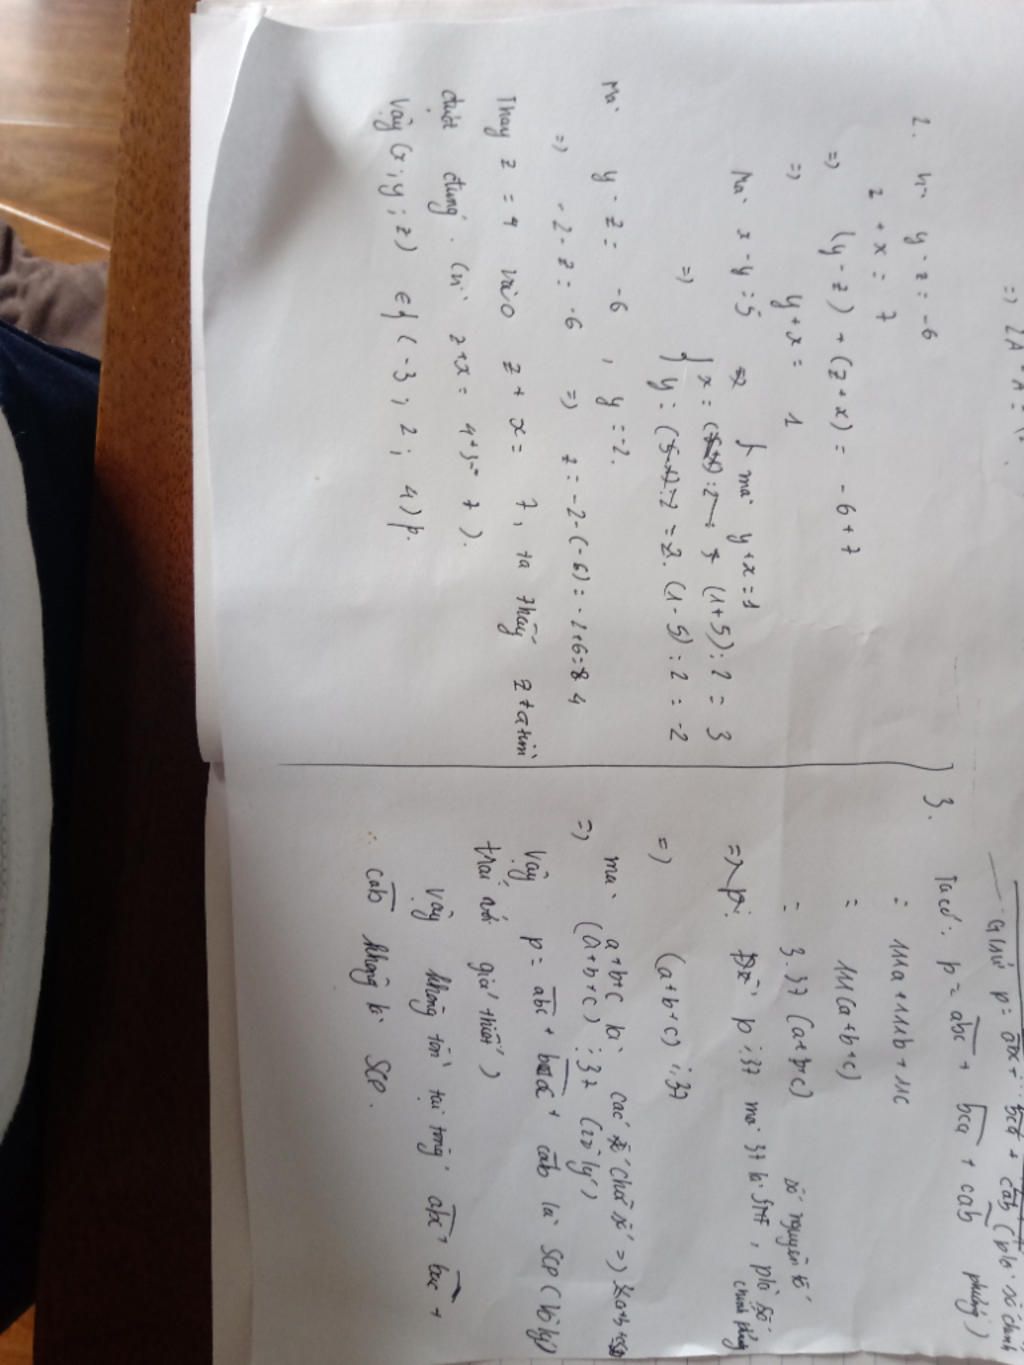 => 2A - A = (2
2. Vì y - z = -6
z + x = 7
=> (y - z) + (z + x) = -6 + 7
=> y + x = 1
Mà x - y = 5 => } mà y + x = 1
=> { x = (1+5) : 2 = 3
y = (1-5) : 2 = -2
Mà y - z = -6 , y = -2.
=> -2 - z = -6 => z = -2 - (-6) = -2 + 6 = 4
Thay z = 4 vào z + x = 7, ta thấy z ta tìm
được đúng. (vì z + x = 4 + 3 = 7).
Vậy (x ; y ; z) ∈ { (-3 ; 2 ; 4) }.
3. Giả sử p = abc + bca + cab (p là số chính
phương)
Ta có: p = abc + bca + cab
= 111a + 111b + 11c
= 111(a+b+c)
= 3.37 (a+b+c)
số nguyên tố
=> Vì p ⋮ 37 mà 37 là SNT, p là số
chính phương
=> (a+b+c) ⋮ 37
mà a+b+c là các chữ số =>
=> (a+b+c) ⋮ 37 (vô lý)
Vậy p = abc + bca + cab là SCP (vô lý)
trái với giả thiết)
Vậy không tồn tại tổng abc + bac +
cab không là SCP.